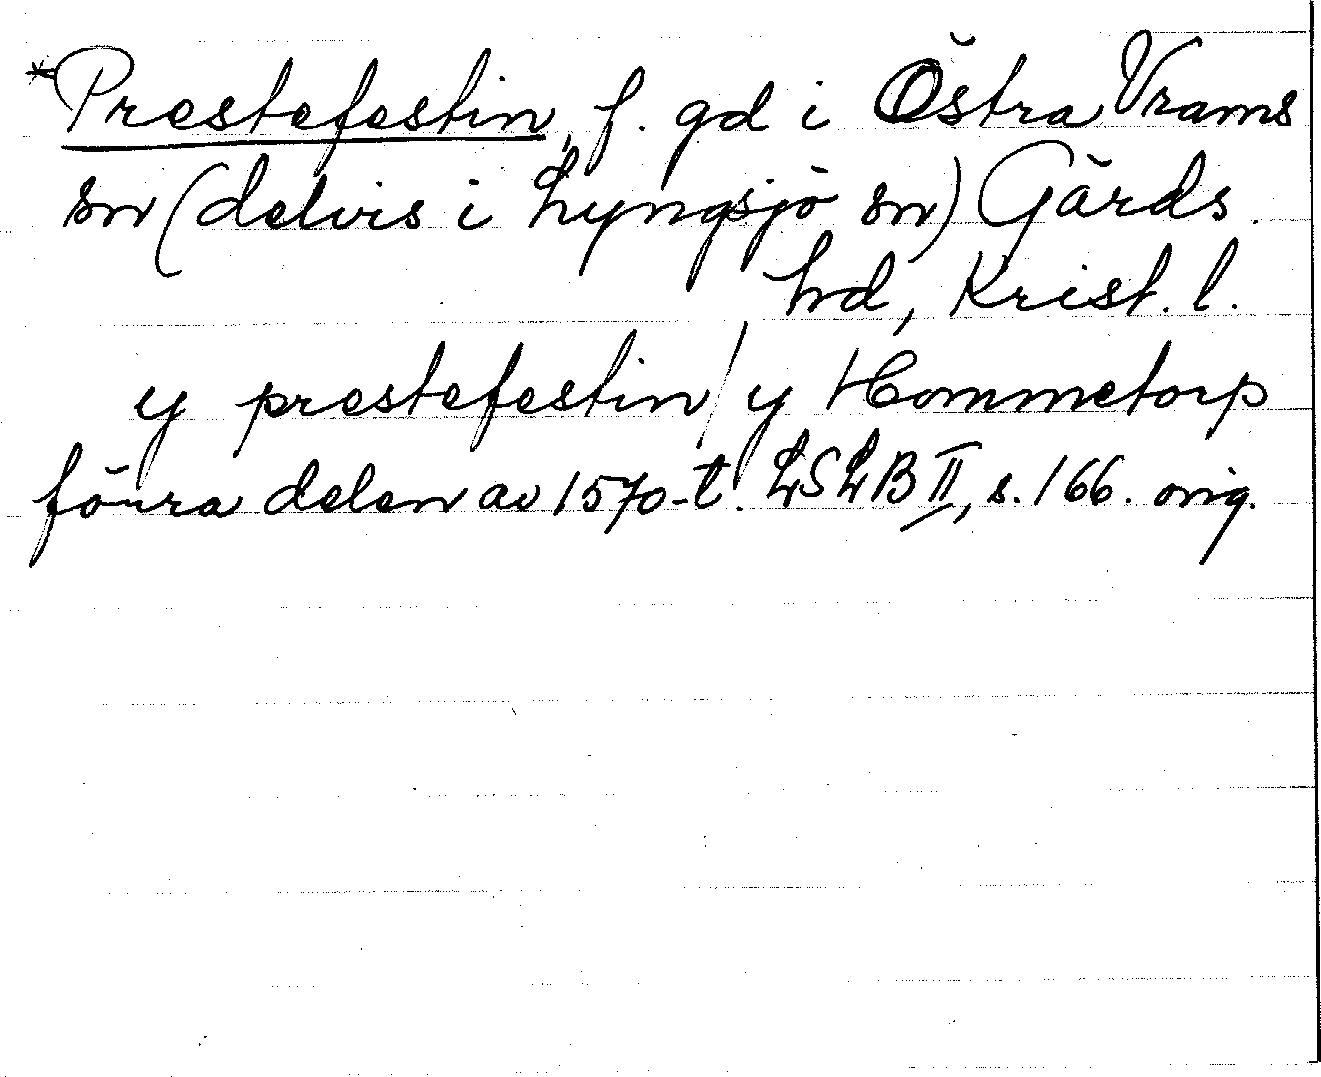 *Prestefestin, f. gd i Östra Vrams
sn (delvis i Lyngsjö sn) Gärds
hd, Krist. l.
y prestefestin / y Hommetorp
förra delen av 1570-t. LSLB II, s. 166. orig.